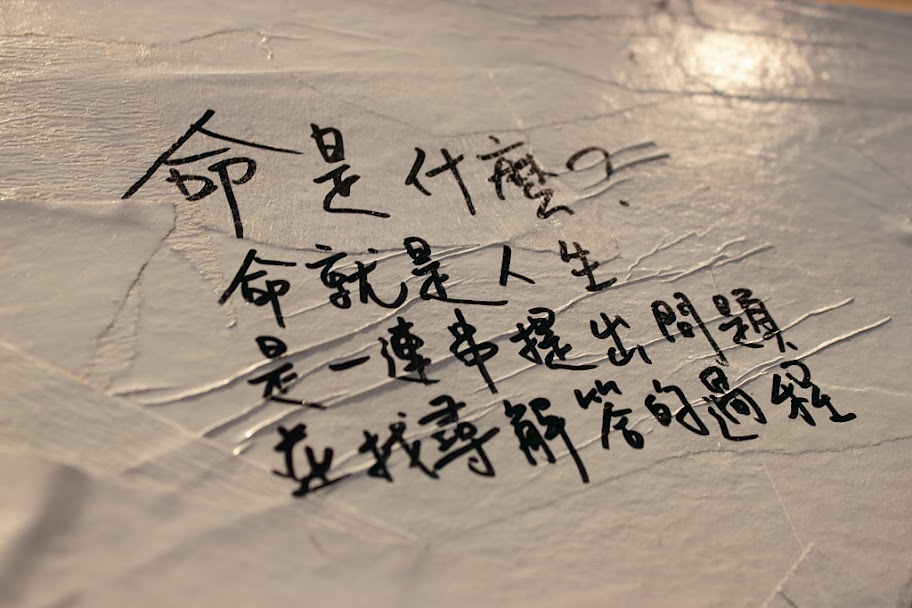 命是什麼?
命就是人生
是一連串提出問題
並找尋解答的過程